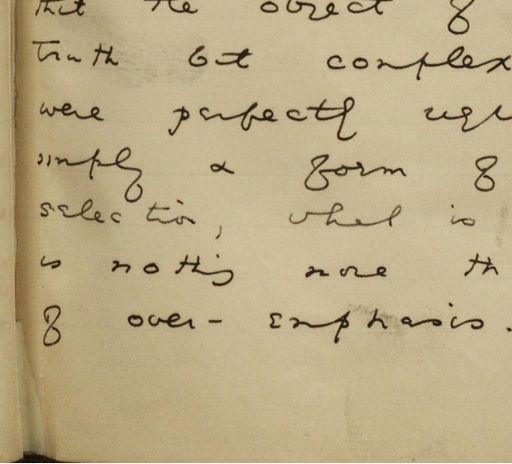 that the object of
truth but complex
were perfectly
simply a form of
selection, what is
is nothing more th
of over-emphasis.